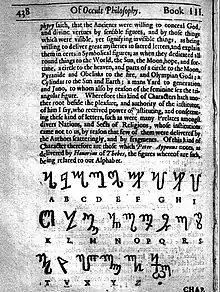 438 Of Occult Philosophy. Book III.
plogy saith, that the Ancients were willing to conceal God,
and divine vertues by sensible figures, and by those things
which were visible, yet signifying invisible things, as being
willing to deliver great mysteries in sacred letters, and explain
them in certain Symbolical figures; as when they dedicated all
round things to the World, the Sun, the Moon, hope, and for-
tune, a circle to the heaven, and parts of a circle to the Moon,
Pyramide and Obelisks to the fire, and Olympian Gods; a
Cylinder to the Sun and Earth; a mans Yard to generation
and Juno, to whom also by reason of the feminine sex the tri-
angular figure. Wherefore this kind of Characters hath ano-
ther root beside the pleasure, and authority of the institutor,
of him I say, who received power of instituting, and consecrat-
ing these kind of letters, such as were many Prelates amongst
divers Nations, and Sects of Religions, whose institutions
came not to us, by reason that few of them were delivered by
the Authors scatteringly, and by fragments. Of this kind of
Character therefore are those which Peter Apponus notes, as
delivered by Honorius of Thebes, the figures whereof are such,
being related to our Alphabet.
A B C D E F G H I
K L M N O P Q R S
T V X Y Z
CHAP.